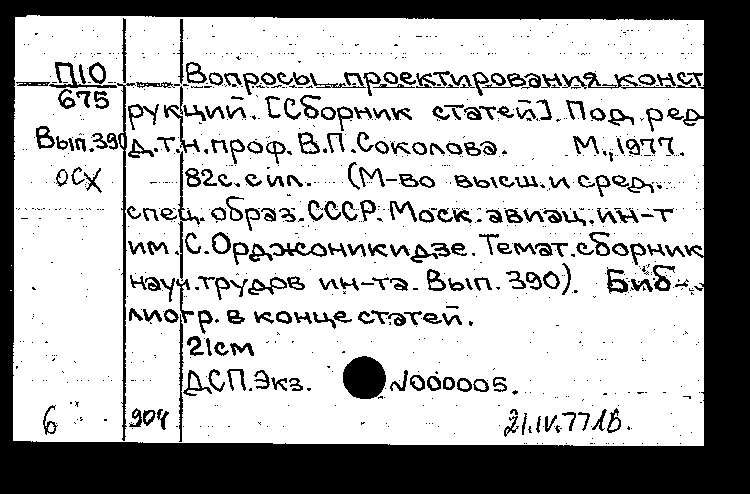 П10
675
Вып.390
осх
Вопросы проектирования конст
рукций. [Сборник статей]. Под ред
д.т.н.проф. В.П.Соколова. М.,1977.
82с.сил. (М-во высш.и сред.
спец.образ.СССР. Моск.авиац.ин-т
им.С.Орджоникидзе. Темат.сборник
науч.трудов ин-та. Вып.390). Биб-
лиогр.в конце статей.
21см
ДСП.Экз. №000005.
6 904 21.IV.77